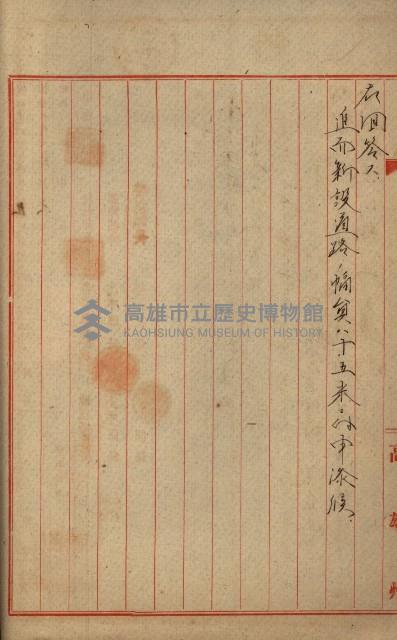 右回答ス、
追而新設道路ノ幅員ハ十五米ニ付申添候、
高雄州
高雄市立歷史博物館
KAOHSIUNG MUSEUM OF HISTORY